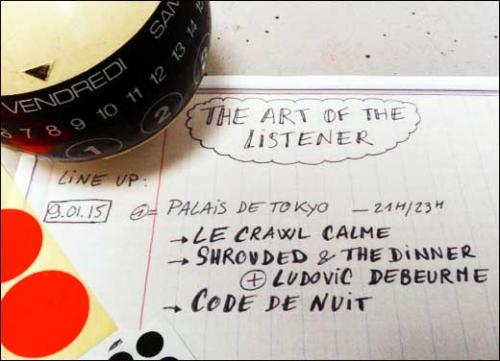 VENDREDI SAM
6 7 8 9 10 11 12 13 14 15
1 2
THE ART OF THE
LISTENER
LINE UP:
9.01.15 = PALAIS DE TOKYO — 21H/23H
→ LE CRAWL CALME
→ SHROUDED & THE DINNER
+ LUDOVIC DEBEURME
→ CODE DE NUIT